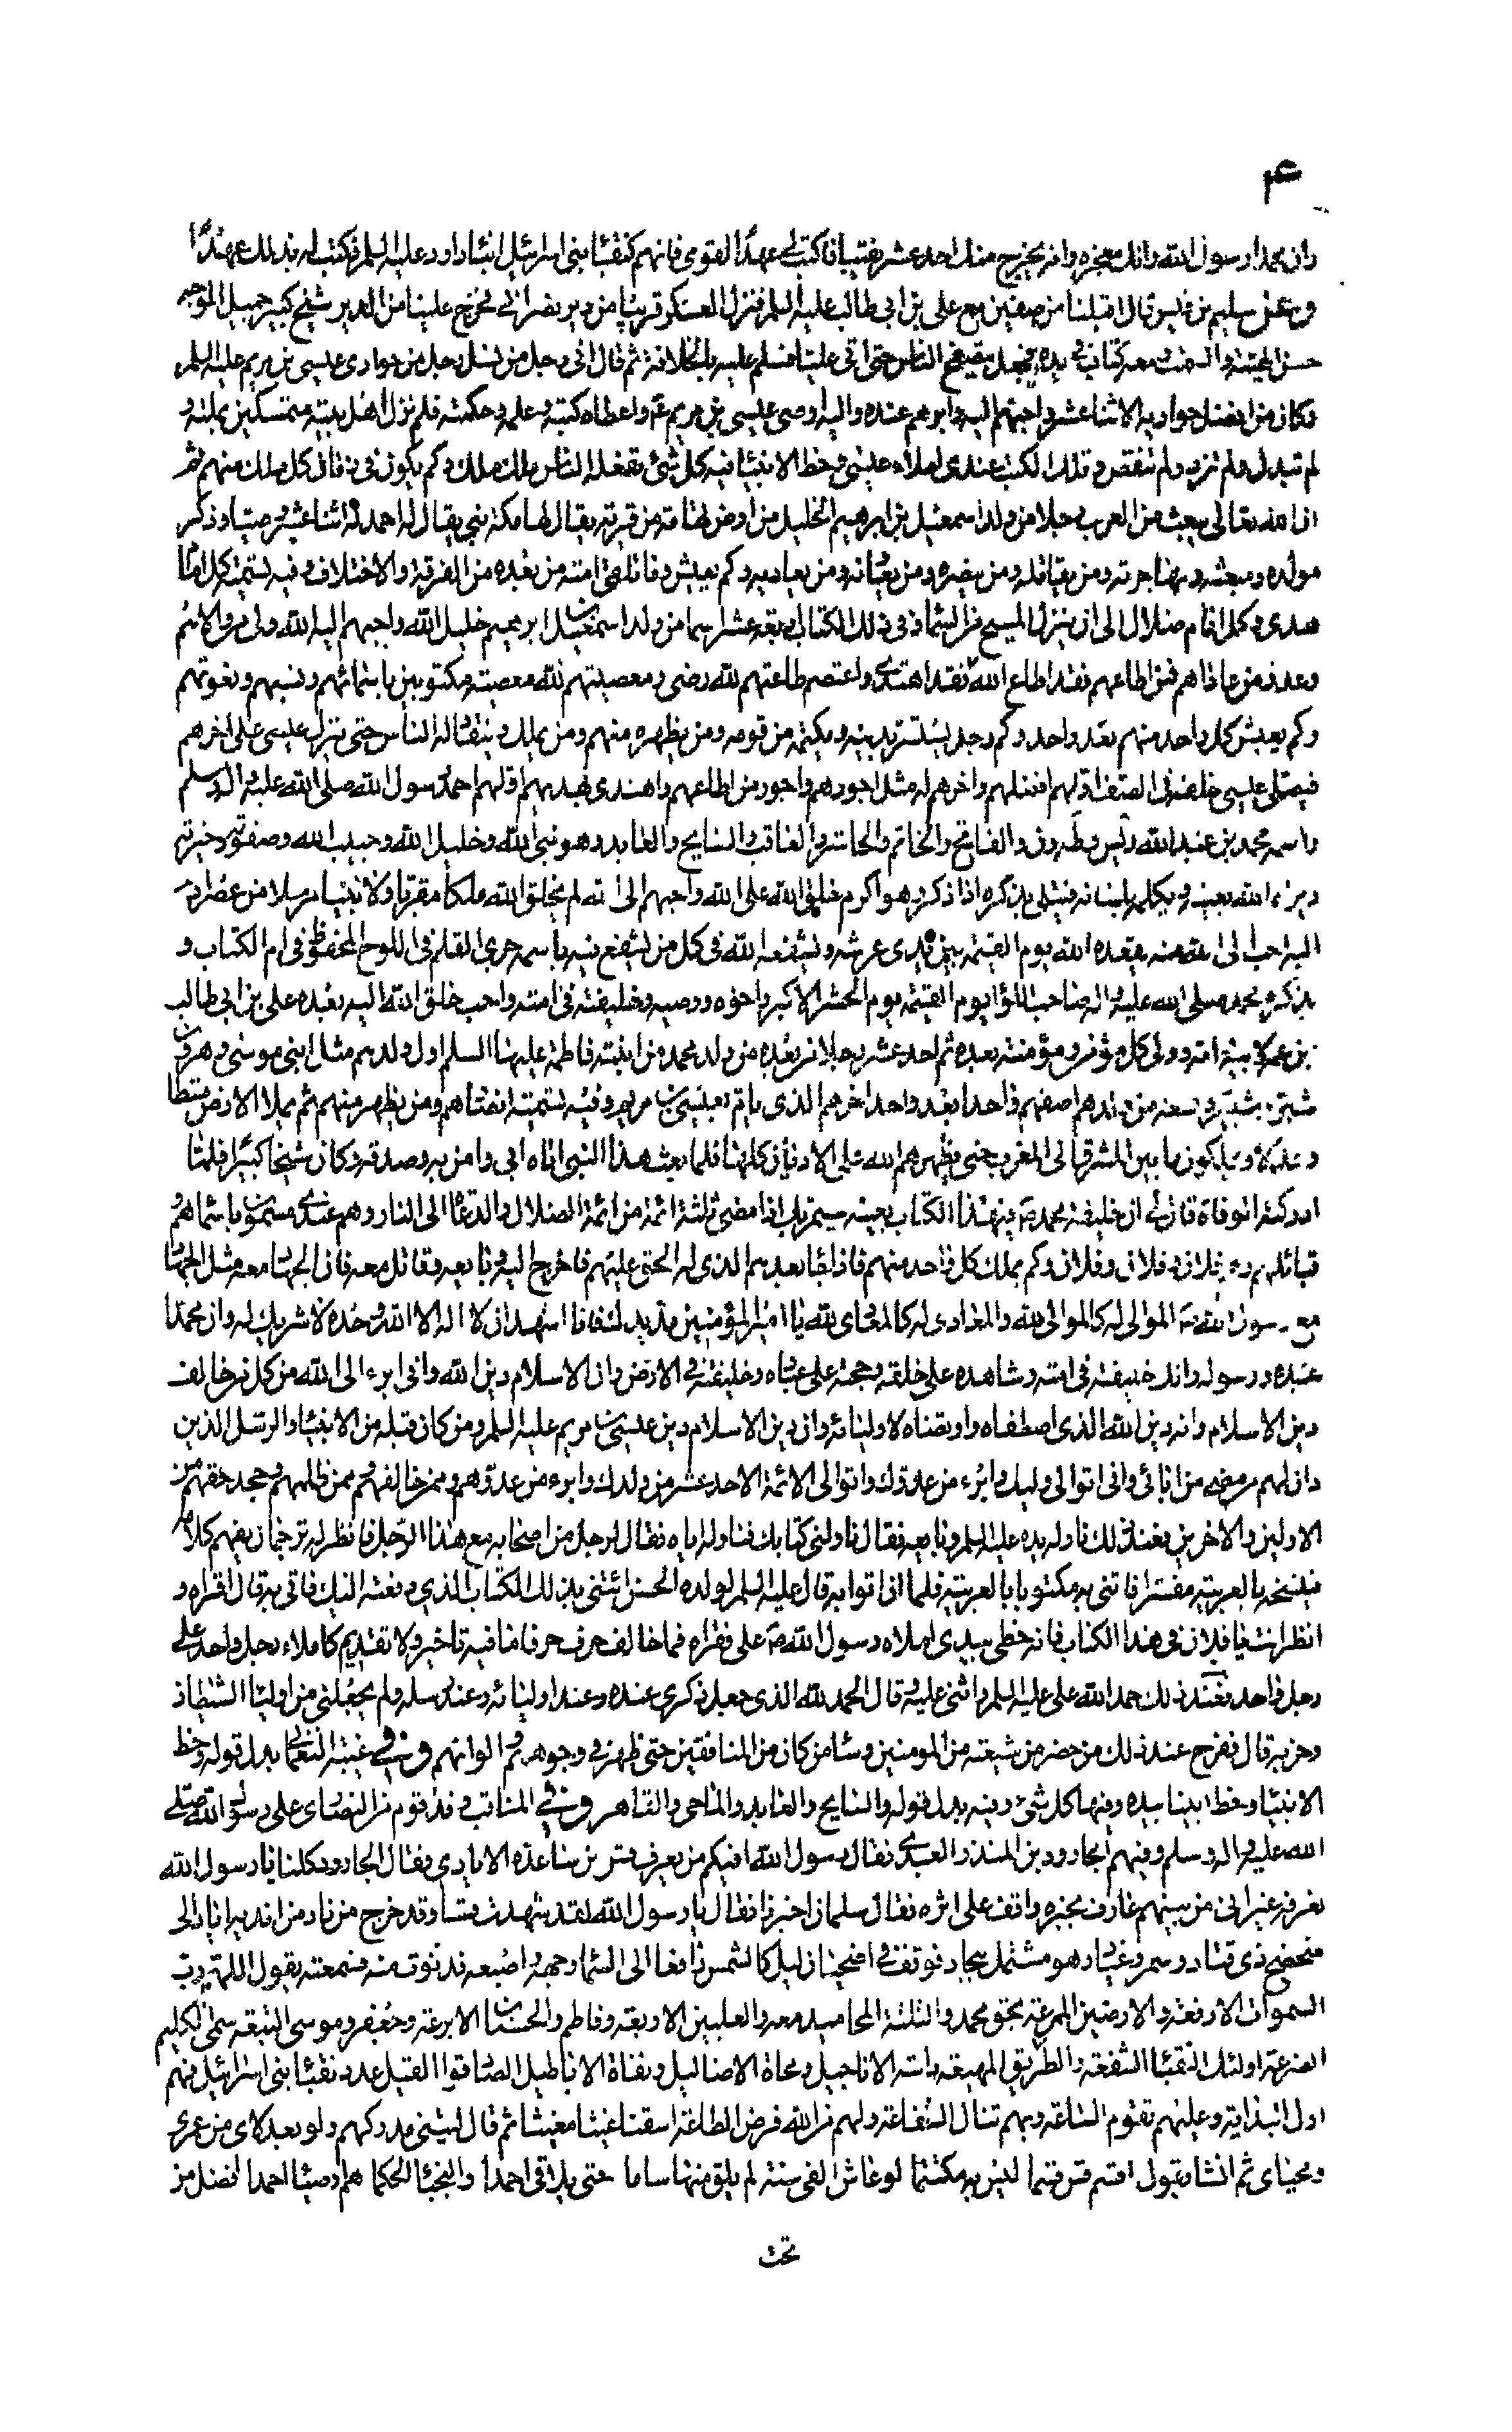 ۴
وان محمدا رسول الله وانك معجزه وانه يخرج منك احد عشر نقيبا فاكتب لى عهدا لقومى فانهم كنقباء بنى اسرائيل ابناء داود عليه السلم فكتب له بذلك عهدا
وعن سليم بن قيس قال اقبلنا من صفين مع على بن ابى طالب عليه السلم فنزل العسكر قريبا من دير نصرانى فخرج علينا من الدير شيخ كبير جميل الوجه
حسن الهيئة والسمت معه كتاب فى يده فجعل يتصفح الناس حتى اتى عليا فسلم عليه بالخلافة ثم قال انى رجل من نسل رجل من حوارى عيسى بن مريم عليه السلم
وكان من افضل حواريه الاثنا عشر واحبهم اليه وابرهم عنده واليه اوصى عيسى بن مريم واعطاه كتبه وعلمه وحكمته فلم يزل اهل بيته متمسكين بملته و
لم تبدل ولم تزد ولم تنقص وتلك الكتب عندى املاء عيسى وخط الانبياء فيه كل شئ تفعله الناس ملك ملك وكم يكون فى زمان كل ملك منهم ثم
ان الله تعالى يبعث من العرب رجلا من ولد اسمعيل بن ابرهيم الخليل من ارض تهامة من قرية يقال لها مكة نبى يقال له احمد له اثنا عشر وصيا وذكر
مولده ومبعثه ومهاجرته ومن يقاتله ومن ينصره ومن يعاونه ومن يعاديه وكم يعيش وما تلقى امته من بعده من الفرقة والاختلاف وفيه تسمية كل امام
هدى وكل امام ضلال الى ان ينزل المسيح من السماء وفى ذلك الكتاب اربعة عشر اسما من ولد اسمعيل بن ابرهيم خليل الله واحبهم اليه الله ولى من والاهم
وعدو من عاداهم فمن اطاعهم فقد اطاع الله فقد اهتدى واعتصم طاعتهم لله رضى ومعصيتهم لله معصية مكتوبين باسمائهم ونسبهم ونعوتهم
وكم يعيش كل واحد منهم بعد واحد وكم رجل يستتر بدينه ويكتمه من قومه ومن يظهره منهم ومن يملك وينقاد له الناس حتى ينزل عيسى على اخرهم
فيصلى عيسى خلفه فى الصف اولهم افضلهم واخرهم له مثل اجورهم واجور من اطاعهم واهتدى بهديهم اولهم احمد رسول الله صلى الله عليه واله وسلم
واسمه محمد بن عبد الله ويس وطه ون والفاتح والخاتم والحاشر والعاقب والسايح والعابد وهو نبى الله وخليل الله وحبيب الله وصفوته وخيرته
يراه الله بعينه ويكلمه بلسانه فيتلى بذكره اذا ذكر وهو اكرم خلق الله على الله واحبهم الى الله لم يخلق الله ملكا مقربا ولا نبيا مرسلا من عصر ادم
اليه احب الى الله منه يقعده الله يوم القيمة بين يدى عرشه ويشفعه الله فى كل من يشفع فيه باسمه جرى القلم فى اللوح المحفوظ فى ام الكتاب و
بذكره محمد صلى الله عليه واله صاحب اللواء يوم القيمة يوم الحشر الاكبر واخوه ووصيه وخليفته فى امته واحب خلق الله اليه بعده على بن ابى طالب
بن عمه لابيه وامه وولى كل مؤمن ومؤمنة بعده ثم احد عشر رجلا من بعده من ولد محمد من ابنته فاطمة عليها السلم اول ولدهم مثل ابنى موسى وهرون
شبر وشبير وتسعة من ولدهم اصفهم واحدا بعد واحد اخرهم الذى ياتم بعيسى بن مريم وفيه تسمية انصارهم ومن يظهر منهم ثم يملا الارض قسطا
وعدلا ويملكون ما بين المشرق الى المغرب حتى يظهرهم الله على الاديان كلها فلما بعث هذا النبى اتاه ابى وامن به وصدقه وكان شيخا كبيرا فلما
ادركته الوفاة قال لى ان خليفة محمد فى هذا الكتاب بعينه سيمر بك اذا مضى ثلثة ائمة من ائمة الضلال والدعاء الى النار وهم عندى مسمون باسمائهم
قبائلهم وهم فلان وفلان وفلان وكم يملك كل واحد منهم فاذا جاء بعدهم الذى له الحق عليهم فاخرج اليه وبايعه وقاتل معه فان الجهاد معه مثل الجهاد
مع رسول الله الموالى له كالموالى لله والمعادى له كالمعادى لله يا امير المؤمنين مد يدك فانا اشهد ان لا اله الا الله وحده لا شريك له وان محمدا
عبده ورسوله وانك خليفته فى امته وشاهده على خلقه وحجته على عباده وخليفته فى الارض وان الاسلام دين الله وانى ابرء الى الله من كل من خالف
دين الاسلام وانه دين الله الذى اصطفاه وارتضاه لاوليائه وان دين الاسلام دين عيسى بن مريم عليه السلم ومن كان قبله من الانبياء والرسل الذين
دان لهم من مضى من ابائى وانى اتوالى وليك وابرء من عدوك واتوالى الائمة الاحد عشر من ولدك وابرء من عدوهم وممن خالفهم وممن ظلمهم وجحد حقهم من
الاولين والاخرين فعند ذلك ناوله يده عليه السلم وبايعه فقال ناولنى كتابك فناوله اياه فقال لرجل من اصحابه مع هذا الرجل فانظر له ترجمان يفهم كلامه
فينسخه بالعربية مفسرا فاتنى به مكتوبا بالعربية فلما ان اتوا به قال عليه السلم لولده الحسن ائتنى بذلك الكتاب الذى دفعته اليك فاتى به قال اقراه و
انظر انت يا فلان فى هذا الكتاب فانه خطى بيدى املاه رسول الله على فقراه فما خالف حرف حرفا ما فيه تاخير ولا تقديم كاملاء رجل واحد على
رجل واحد فعند ذلك حمد الله على عليه السلم واثنى عليه وقال الحمد لله الذى جعل ذكرى عنده وعند اوليائه وعند رسله ولم يجعلنى من اولياء الشيطان
وحزبه قال ففرح عند ذلك من حضر من شيعته من المومنين وساء من كان من المنافقين حتى ظهر فى وجوههم والوانهم وفى غيبة النعمانى بدل قوله وخط
الانبياء وخط ابينا بيده وفيها كل شئ وفيه بدل قوله والسايح والعابد والماحى والقاهر وفى المناقب وفد قوم من النصارى على رسول الله صلى
الله عليه واله وسلم وفيهم الجارود بن المنذر العبدى فقال رسول الله افيكم من يعرف قس بن ساعدة الايادى فقال الجارود كلنا يا رسول الله
نعرفه غير انى من بينهم عارف بخبره واقف على اثره فقال سلمان اخبرنا فقال يا رسول الله لقد شهدت قسا وقد خرج من ناد من اندية اياد الى
صحصح ذى قتاد وسمر وغياد وهو مشتمل بنجاد فوقف فى اضحيان ليل كالشمس رافعا الى السماء وجهه واصبعه فدنوت منه فسمعته يقول اللهم رب
السموات الارفعة والارضين الممرعة بحق محمد والثلثة المحاميد معه والعليين الاربعة وفاطم والحسنان الابرعة وجعفر وموسى التبعة سمى الكليم
الضرعة اولئك النقباء الشفعة والطريق المهيعة راسة الاناجيل ومحاة الاضاليل ونفاة الاباطيل الصادقوا القيل عدد نقباء بنى اسرائيل فهم
اول البداية وعليهم تقوم الساعة وبهم تنال الشفاعة ولهم من الله فرض الطاعة اسقنا غيثا مغيثا ثم قال ليتنى مدركهم ولو بعد لاى من عمرى
ومحياى ثم انشا يقول اقسم قس قسما ليس به مكتتما لو عاش الفى سنة لم يلق منها ساما حتى يلاقى احمدا والنجباء الحكما هم اوصياء احمدا افضل من
تحت